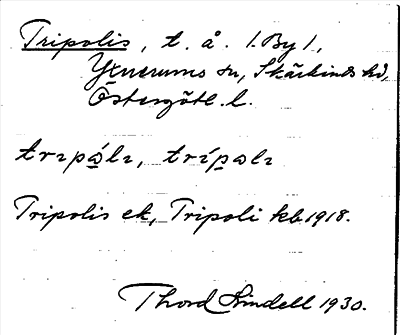 Tripolis, t. å. 1. By 1,
Ytnerums sn, Skärkinds hd,
Östergötl. l.
trɪpálɪ, trípalɪ
Tripolis ek, Tripoli kb 1918.
Thord Lindell 1930.